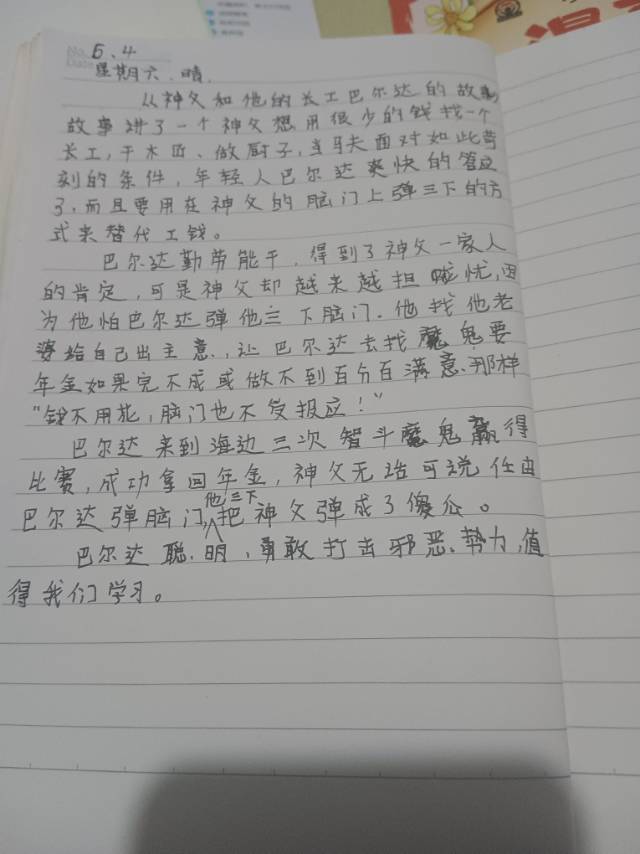 5.4
星期六 晴.
从神父和他的长工巴尔达的故事
故事讲了一个神父想用很少的钱找一个
长工,干木匠、做厨子,当马夫面对如此苛
刻的条件,年轻人巴尔达爽快的答应
了,而且要用在神父的脑门上弹三下的方
式来替代工钱。
巴尔达勤劳能干,得到了神父一家人
的肯定,可是神父却越来越担忧,因
为他怕巴尔达弹他三下脑门.他找他老
婆给自己出主意.,让巴尔达去找魔鬼要
年金如果完不成或做不到百分百满意、那样
“钱不用花,脑门也不受报应!”
巴尔达来到海边三次智斗魔鬼赢得
比赛,成功拿回年金,神父无话可说任由
巴尔达弹脑门他三下把神父弹成了傻瓜。
巴尔达聪.明,勇敢打击邪恶、势力,值
得我们学习。